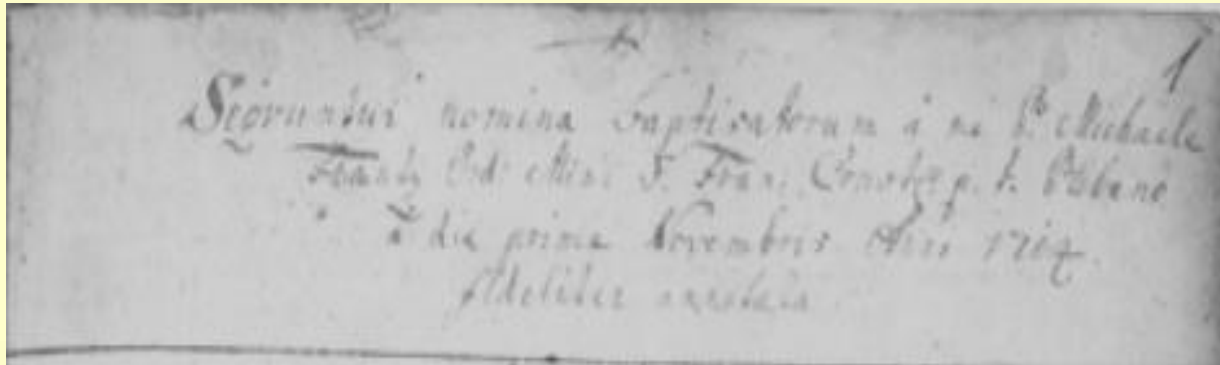 1
Sequuntur nomina Baptisatorum à me P. Michaele
Ord: Min: S. Fran: p. t. Plebano
à die prima Novembris Anni
fideliter annotata